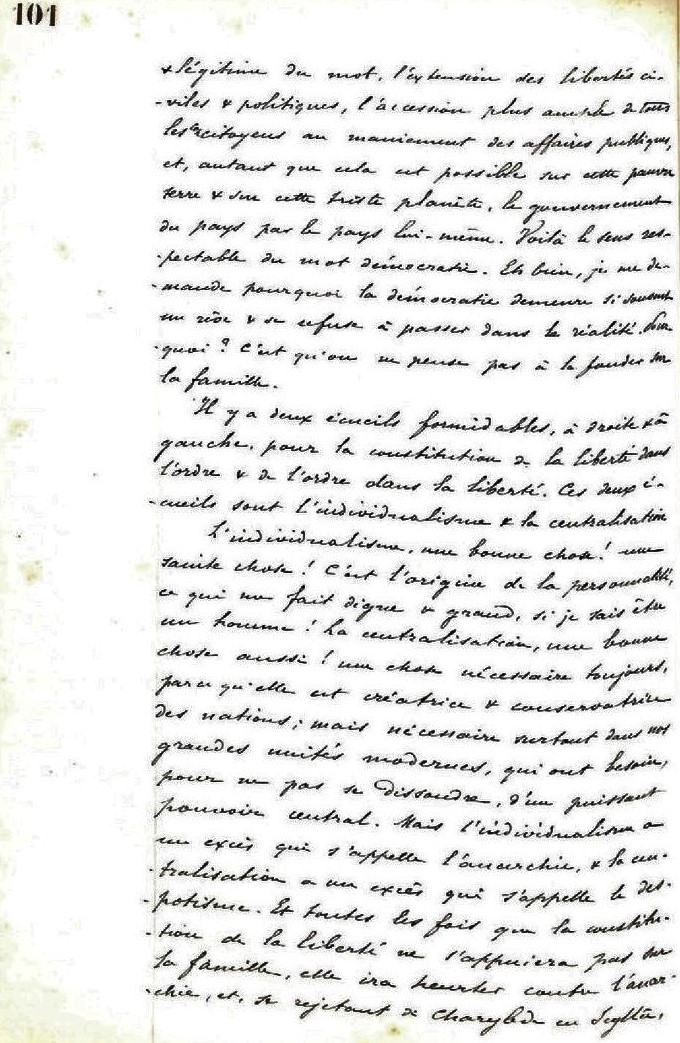 101
& légitime du mot, l'extension des libertés ci-
-viles & politiques, l'accession plus ample de tous
les citoyens au maniement des affaires publiques,
et, autant que cela est possible sur cette pauvre
terre & sur cette triste planète, le gouvernement
du pays par le pays lui-même. Voilà le sens res-
-pectable du mot démocratie. Eh bien, je me de-
-mande pourquoi la démocratie demeure si souvent
un rêve & se refuse à passer dans la réalité. Pour-
-quoi? C'est qu'on ne pense pas à la fonder sur
la famille.
Il y a deux écueils formidables, à droite & à
gauche, pour la constitution de la liberté dans
l'ordre & de l'ordre dans la liberté. Ces deux é-
-cueils sont l'individualisme & la centralisation
L'individualisme, une bonne chose! une
sainte chose! C'est l'origine de la personnalité,
ce qui me fait digne & grand, si je sais être
un homme! La centralisation, une bonne
chose aussi! une chose nécessaire toujours,
parce qu'elle est créatrice & conservatrice
des nations; mais nécessaire surtout dans nos
grandes unités modernes, qui ont besoin,
pour ne pas se dissoudre, d'un puissant
pouvoir central. Mais l'individualisme a
un excès qui s'appelle l'anarchie, & la cen-
-tralisation a un excès qui s'appelle le des-
-potisme. Et toutes les fois que la constitu-
-tion de la liberté ne s'appuiera pas sur
la famille, elle ira heurter contre l'anar-
-chie, et, se rejetant de Charybde en Scylla,